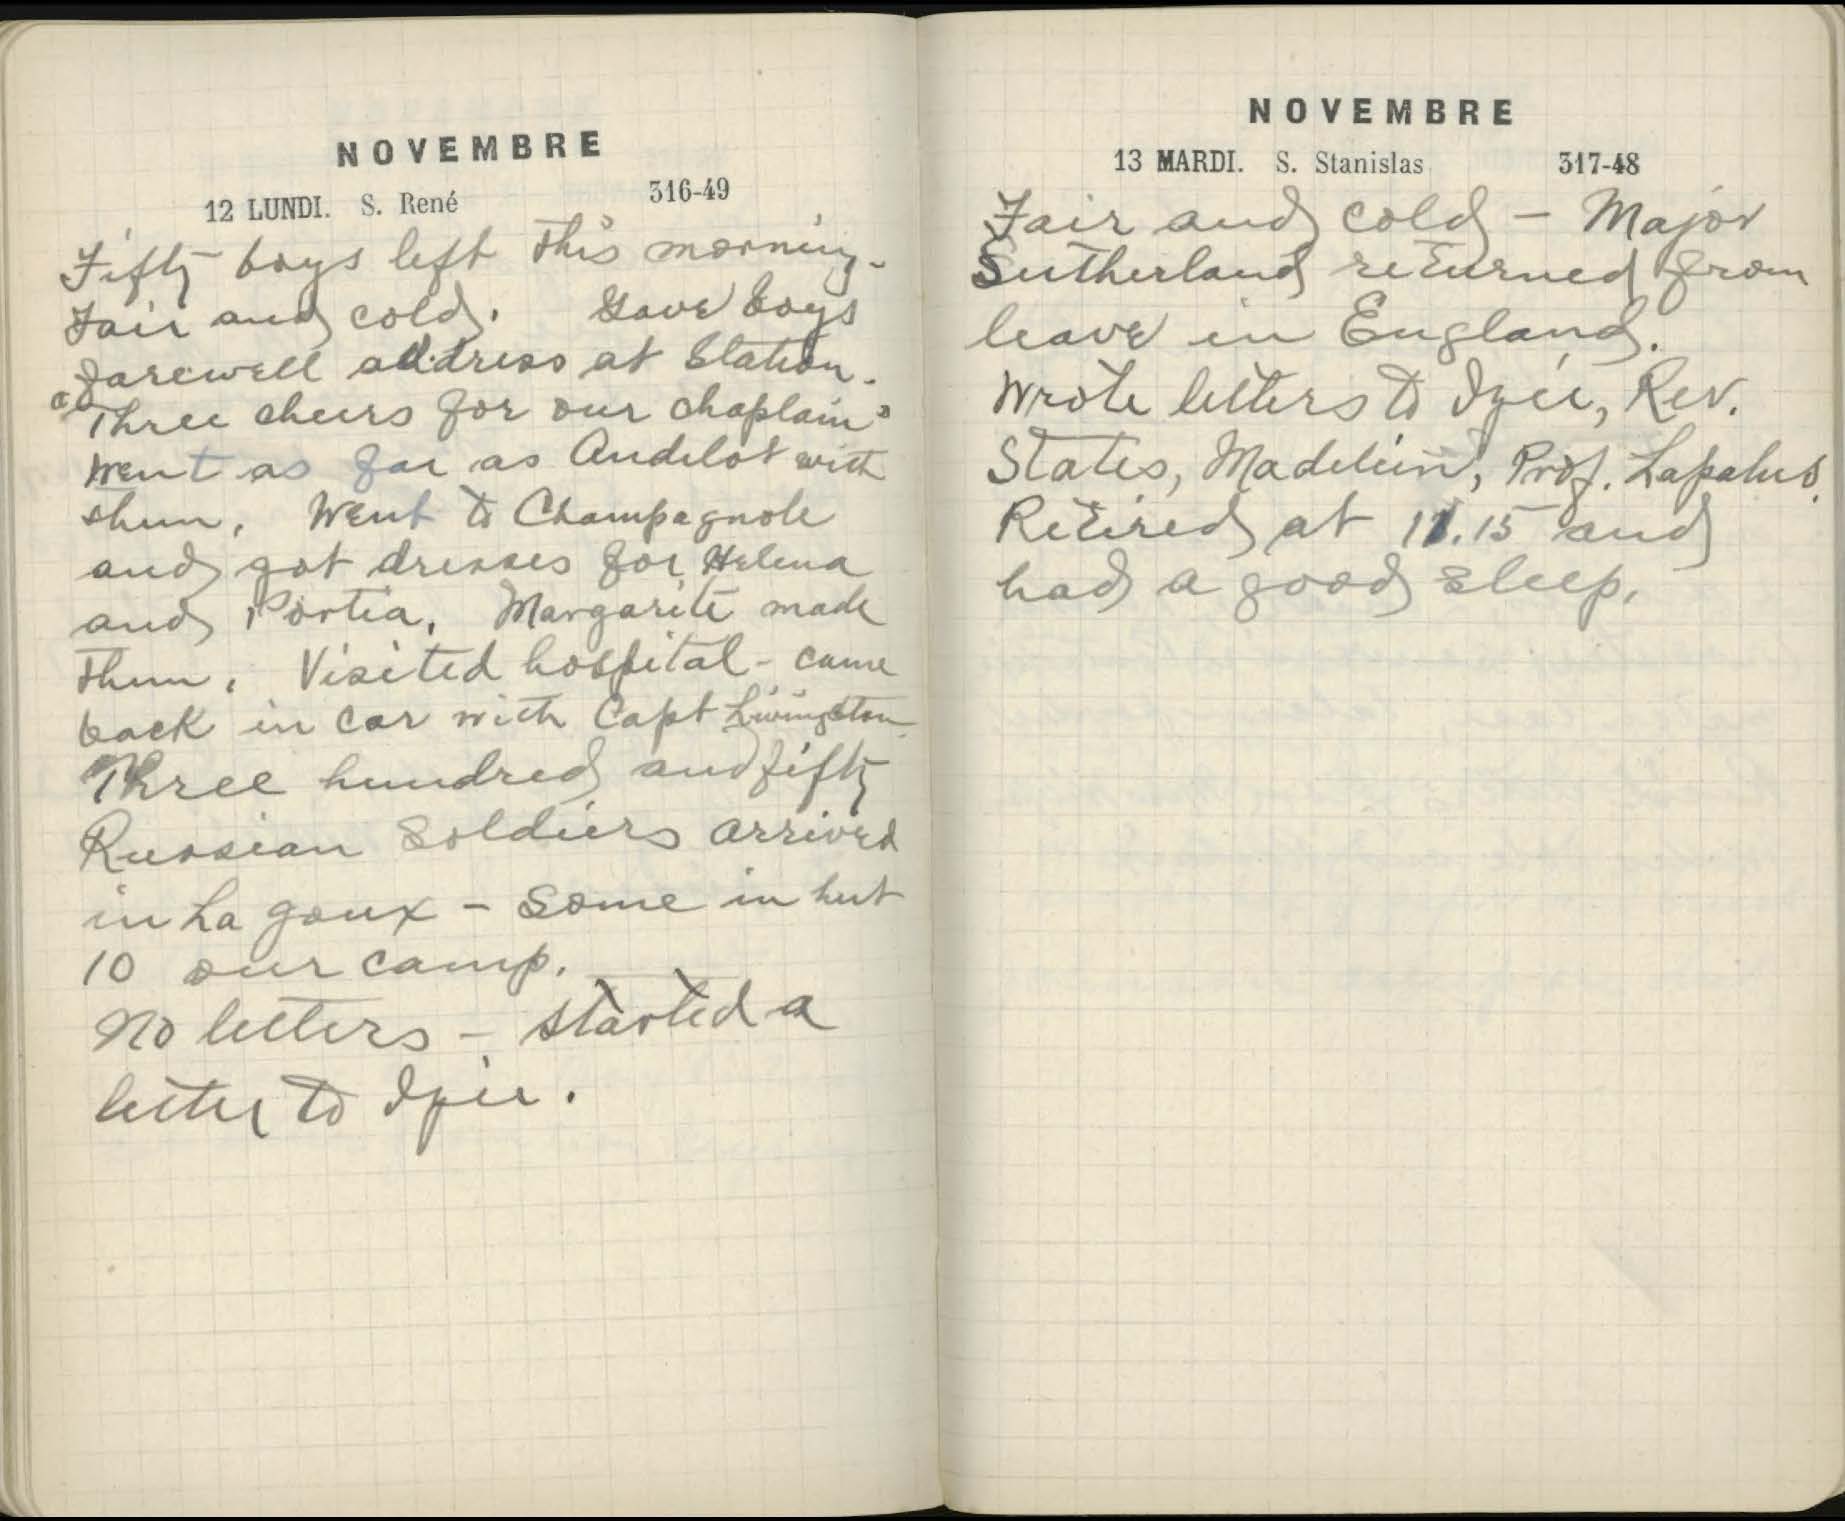 NOVEMBRE
12 LUNDI. S. René 316-49
Fifty boys left this morning-
Fair and cold. Gave boys
farewell address at Station.
"Three cheers for our chaplain"
Went as far as Andelot with
them. Went to Champagnole
and got dresses for Helena
and Portia. Margarite made
them. Visited hospital - came
back in car with Capt Livingston
Three hundred and fifty
Russian Soldiers arrived
in La Joux - Some in hut
10 our camp.
No letters - started a
letter to
NOVEMBRE
13 MARDI. S. Stanislas 317-48
Fair and cold - Major
Sutherland returned from
leave in England.
Wrote letters to Rev.
States, Madeline, Prof. Lapalus.
Retired at 11.15 and
had a good sleep.